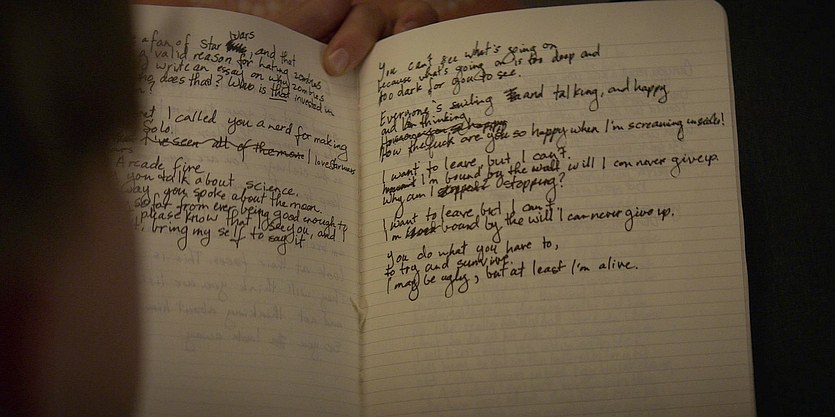 a fan of Star Wars
, and that
a valid reason for hating zombies
write an essay on why zombies
does that? Who is that invested in
I called you a nerd for making
Solo.
I've seen all of them I love Star Wars
Arcade Fire
you talk about science.
way you spoke about the moon
so far from ever being good enough to
please know that I see you, and
bring my self to say it
You can't see what's going on
because what's going on is too deep and
too dark for you to see.
Everyone's smiling and talking, and happy
and I'm thinking,
How the fuck are you so happy when I'm screaming inside!
I want to leave, but I can't.
I'm bound by the wall, will I can never give up.
Why am I stopping?
I want to leave, but I can't
I'm bound by the will I can never give up.
You do what you have to,
to try and survive.
I may be ugly, but at least I'm alive.